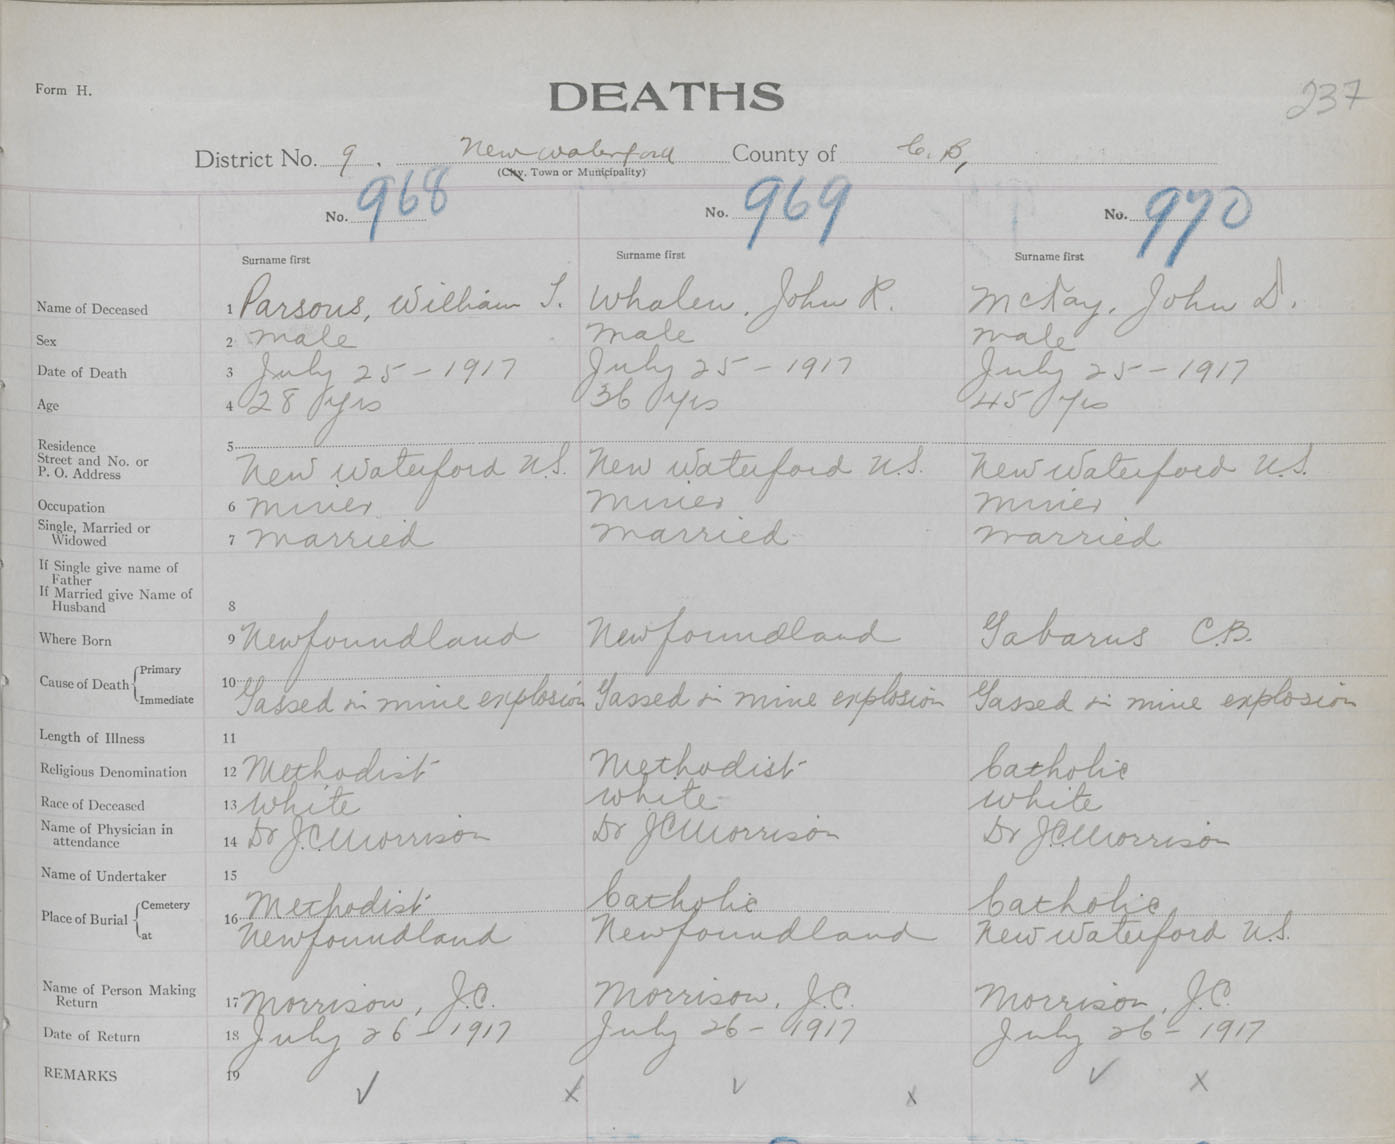 Form H.
DEATHS
237
District No. 9. New Waterford County of C. B,
(City, Town or Municipality)
No. 968 No. 969 No. 970
Surname first Surname first Surname first
Name of Deceased 1 Parsons, William T. Whalen, John R. McKay, John D.
Sex 2 male male male
Date of Death 3 July 25 - 1917 July 25 - 1917 July 25 - 1917
Age 4 28 yrs 36 yrs 45 yrs
Residence 5
Street and No. or
P. O. Address New Waterford N.S. New Waterford N.S. New Waterford N.S.
Occupation 6 miner miner miner
Single, Married or
Widowed 7 married married married
If Single give name of
Father
If Married give Name of
Husband 8
Where Born 9 Newfoundland Newfoundland Gabarus C.B.
Cause of Death Primary 10
Immediate Gassed in mine explosion Gassed in mine explosion Gassed in mine explosion
Length of Illness 11
Religious Denomination 12 Methodist Methodist Catholic
Race of Deceased 13 white white white
Name of Physician in
attendance 14 Dr J.C. Morrison Dr J C Morrison Dr J.C. Morrison
Name of Undertaker 15
Place of Burial Cemetery 16 Methodist Catholic Catholic
at Newfoundland Newfoundland New Waterford N.S.
Name of Person Making
Return 17 Morrison, J.C. Morrison, J.C. Morrison, J.C.
Date of Return 18 July 26 - 1917 July 26 - 1917 July 26 - 1917
REMARKS 19 ✓ x ✓ x ✓ x